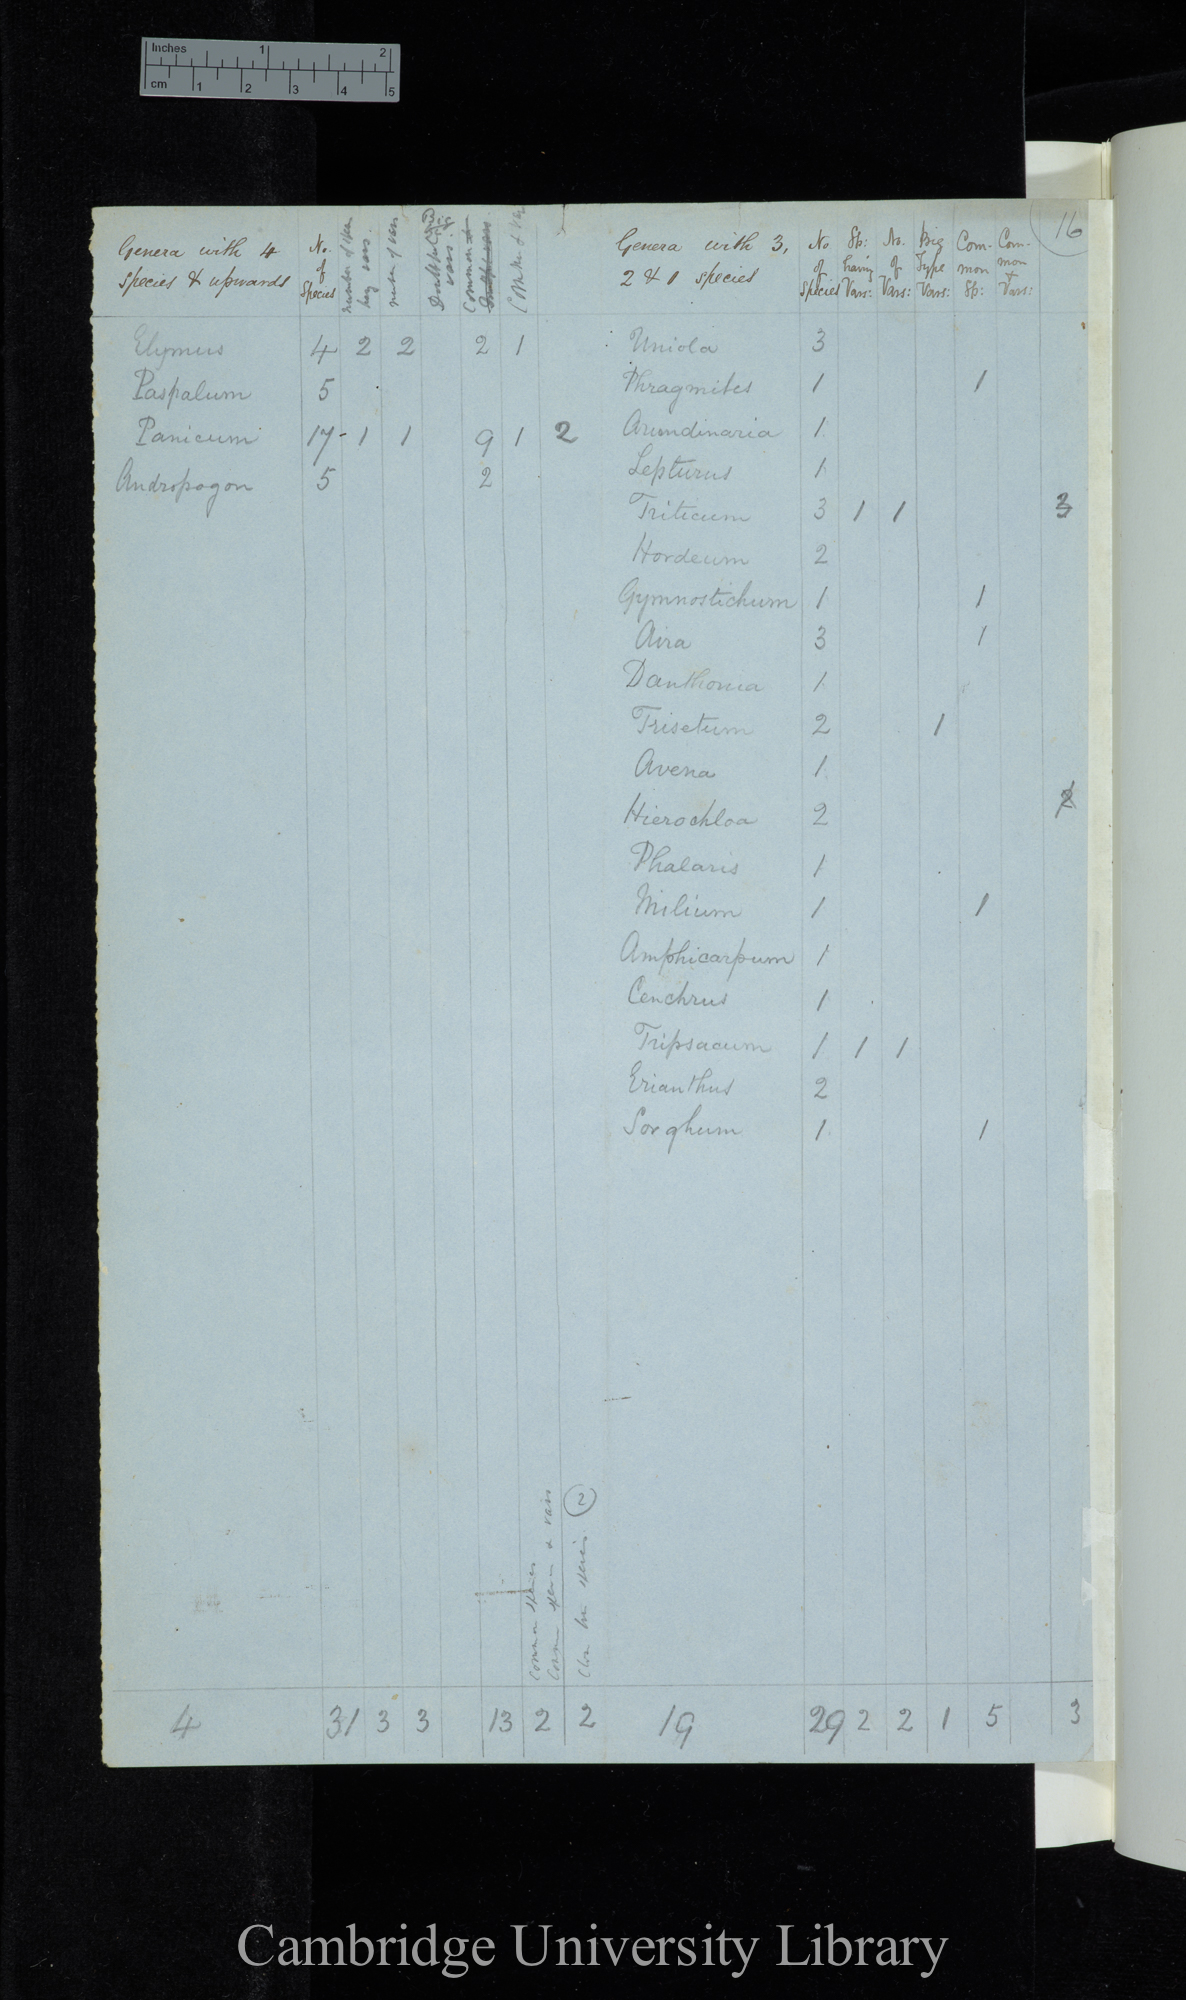 Inches 1 2
cm 1 2 3 4 5
16
Genera with 4 species & upwards
No. of Species
number of
number of vars
Common
Genera with 3, 2 & 1 species
No of Species
Sp: having Vars:
No. of Vars:
Big Type Vars:
Com-mon Sp:
Com-mon + Vars:
Elymus 4 2 2 2 1
Paspalum 5
Panicum 17- 1 1 9 1 2
Andropogon 5 2
Uniola 3
Phragmites 1 1
Arundinaria 1
Lepturus 1
Triticum 3 1 1 3
Hordeum 2
Gymnostichum 1 1
Aira 3 1
Danthonia 1
Trisetum 2 1
Avena 1
Hierochloa 2
Phalaris 1
Milium 1 1
Amphicarpum 1
Cenchrus 1
Tripsacum 1 1 1
Erianthus 2
Sorghum 1 1
Common species
& vars
2
species
4 31 3 3 13 2 2 19 29 2 2 1 5 3
Cambridge University Library